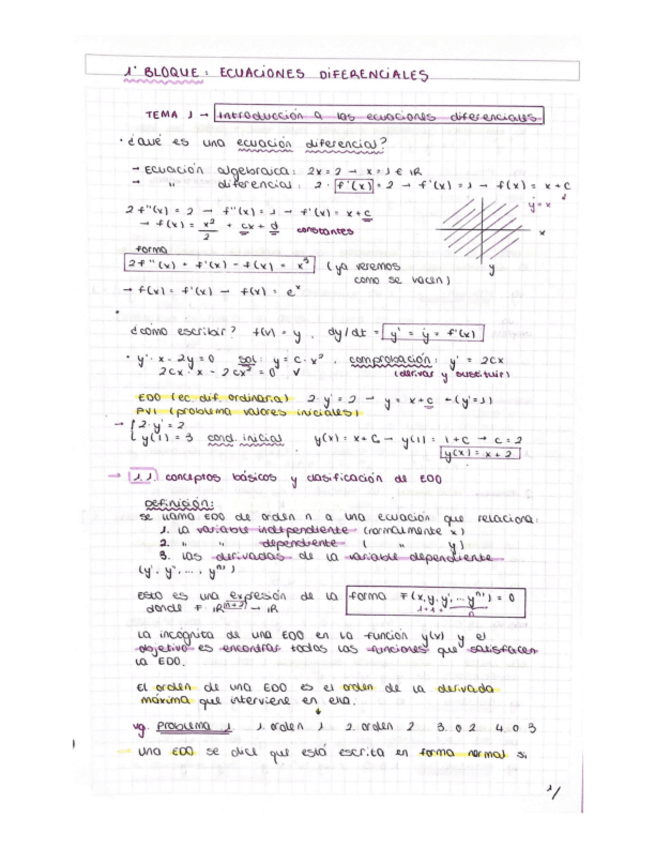 1º BLOQUE: ECUACIONES DIFERENCIALES
TEMA 1 → Introducción a las ecuaciones diferenciales
· ¿Qué es una ecuación diferencial?
→ Ecuación algebraica: 2x = 2 → x = 1 ∈ ℝ
→ " diferencial: 2 · f'(x) = 2 → f'(x) = 1 → f(x) = x + C
2 f''(x) = 2 → f''(x) = 1 → f'(x) = x + c
→ f(x) = x²/2 + cx + d constantes
y = x
x
y
forma
2f''(x) + f'(x) - f(x) = x³ (ya veremos
como se hacen)
→ f(x) = f'(x) → f(x) = eˣ
¿cómo escribir? f(x) = y , dy/dt = y' = ẏ = f'(x)
· y' · x - 2y = 0 sol: y = c · x² , comprobación: y' = 2cx
2cx · x - 2cx² = 0 ✓ (derivar y sustituir)
EDO (ec. dif. ordinaria) 2 · y' = 2 → y = x + c → (y' = 1)
PVI (problema valores iniciales)
→ { 2 · y' = 2
y(1) = 3 cond. inicial y(x) = x + C → y(1) = 1 + C → c = 2
y(x) = x + 2
→ 1.1. conceptos básicos y clasificación de EDO
Definición:
Se llama EDO de orden n a una ecuación que relaciona:
1. La variable independiente (normalmente x)
2. " " dependiente ( " y)
3. Las derivadas de la variable dependiente
(y', y'', ..., yⁿ⁾)
Esto es una expresión de la forma F(x, y, y', ... yⁿ⁾) = 0
donde F: ℝ⁽ⁿ⁺²⁾ → ℝ
1+1+ n
La incógnita de una EDO en la función y(x) y el
objetivo es encontrar todas las funciones que satisfacen
la EDO.
El orden de una EDO es el orden de la derivada
máxima que interviene en ella.
vg. Problema 1 1. orden 1 2. orden 2 3. o 2 4. o 3
una EDO se dice que está escrita en forma normal si,
1/